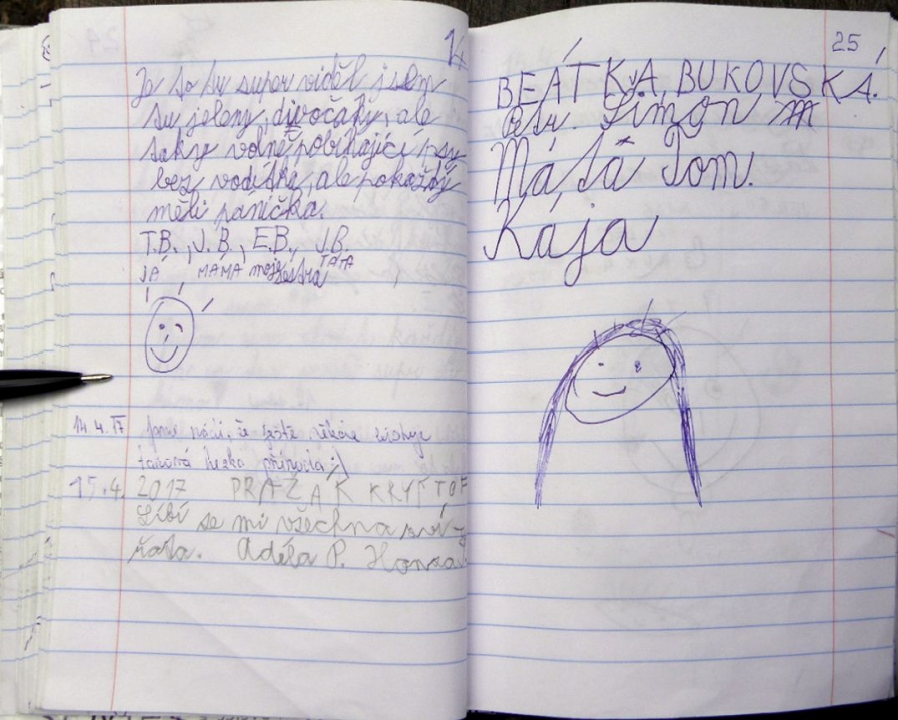 Je to tu super viděl jsem
tu jeleny, divočáky, ale
taky volně pobíhající psy
bez vodítka, ale pokaždý
měli páníčka.
T.B., J.B., E.B., J.B.
JÁ MÁMA moje sestra TÁTA
14.4.17 Jsme rádi, že ještě někde existuje
taková hezká příroda ;)
15.4. 2017 PRAŽÁK KRYŠTOF
Líbí se mi všechna zví-
řata. Adéla P. Honza
25
BEÁTKA, BUKOVSKÁ.
Šimon
Máťa Tom.
Kája